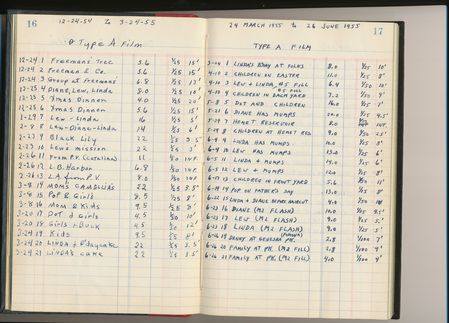 16
12-24-54 TO 3-24-55
TYPE A FILM
12-24 1 Freeman's Tree 5.6 1/25 15'
12-24 2 Freeman & Co. 5.6 1/25 15'
12-24 3 Group at Freeman's 6.8 1/25 13'
12-25 4 Diane, Lew, Linda 8.0 1/25 10'
12-25 5 Xmas Dinner 4.0 1/25 20'
12-25 6 Xmas Dinner 5.6 1/25 15'
1-29 7 Lew - Linda 16 1/25 5'
2-8 8 Lew-Diane-Linda 14 1/25 6'
2-23 9 Black Lily 22 1/25 3.5'
2-23 10 Lew's mission 22 1/25 3'
2-26 11 From P.V. (Catalina) 11
2-26 12 L.B. Harbor
2-26 13 LA from P.V.
3-9 14 MOM'S 22 1/25 3.5'
3-4 15 Pop & Girls 8.5 1/25 8'
3-8 16 Mom & Kids 9.5 1/25 8'
3-20 17 Dot & Girls 4.5 10'
3-20 18 Girls & Buck 4.5 12'
3-24 19 Kids 9.5 1/25 8'
3-24 20 LINDA & B'day cake 22 1/25 3.5'
3-24 21 LINDA'S CAKE 22 1/25 3.5'
24 MARCH 1955 TO 26 JUNE 1955
17
TYPE A FILM
3-24 1 LINDA'S B'DAY AT FOLKS 8.0 1/25 10'
4-10 2 CHILDREN IN EASTER 11.0 1/25 8'
4-10 3 LEW & LINDA, #5 FILL 6.4 1/50 10'
4-10 4 CHILDREN IN BACKYARD #5 FILL 7.2 1/50 9'
5-8 5 DOT AND CHILDREN 16.0 1/25 7'
5-21 6 DIANE HAS MUMPS 20.0 1/25 4.5'
5-29 7 HEMET RESERVOIR 8.0
5-29 8 CHILDREN AT HEMET RES 9.0 1/50 25'
6-4 9 LINDA HAS MUMPS 1/25 5'
6-4 10 LEW HAS MUMPS 13.0 1/25 6'
6-5 11 LINDA + MUMPS 14.0 1/25 6'
6-5 12 LEW + MUMPS 12.0 1/25 8'
13 CHILDREN IN FRONT YARD 5.6 1/50 11'
6-19 14 POP ON FATHER'S DAY 13.0 1/25 8'
6-22 15 LINDA & DIANE BEFORE HAIRCUT 4.0 1/50 10'
6-23 16 DIANE (M2 FLASH) 10.0 1/25 4.5'
6-23 17 LEW (M2 FLASH) 9.0 1/25 5'
6-23 18 LINDA (M2 FLASH) 9.0 1/25 5'
6-26 19 DENNY AT GENESEA PK. 2.8 1/100 7'
6-26 20 FAMILY AT PK. (M2 FILL) 2.8 1/100 4'
6-26 21 FAMILY AT PK. (M2 FILL) 4.0 1/100 4'